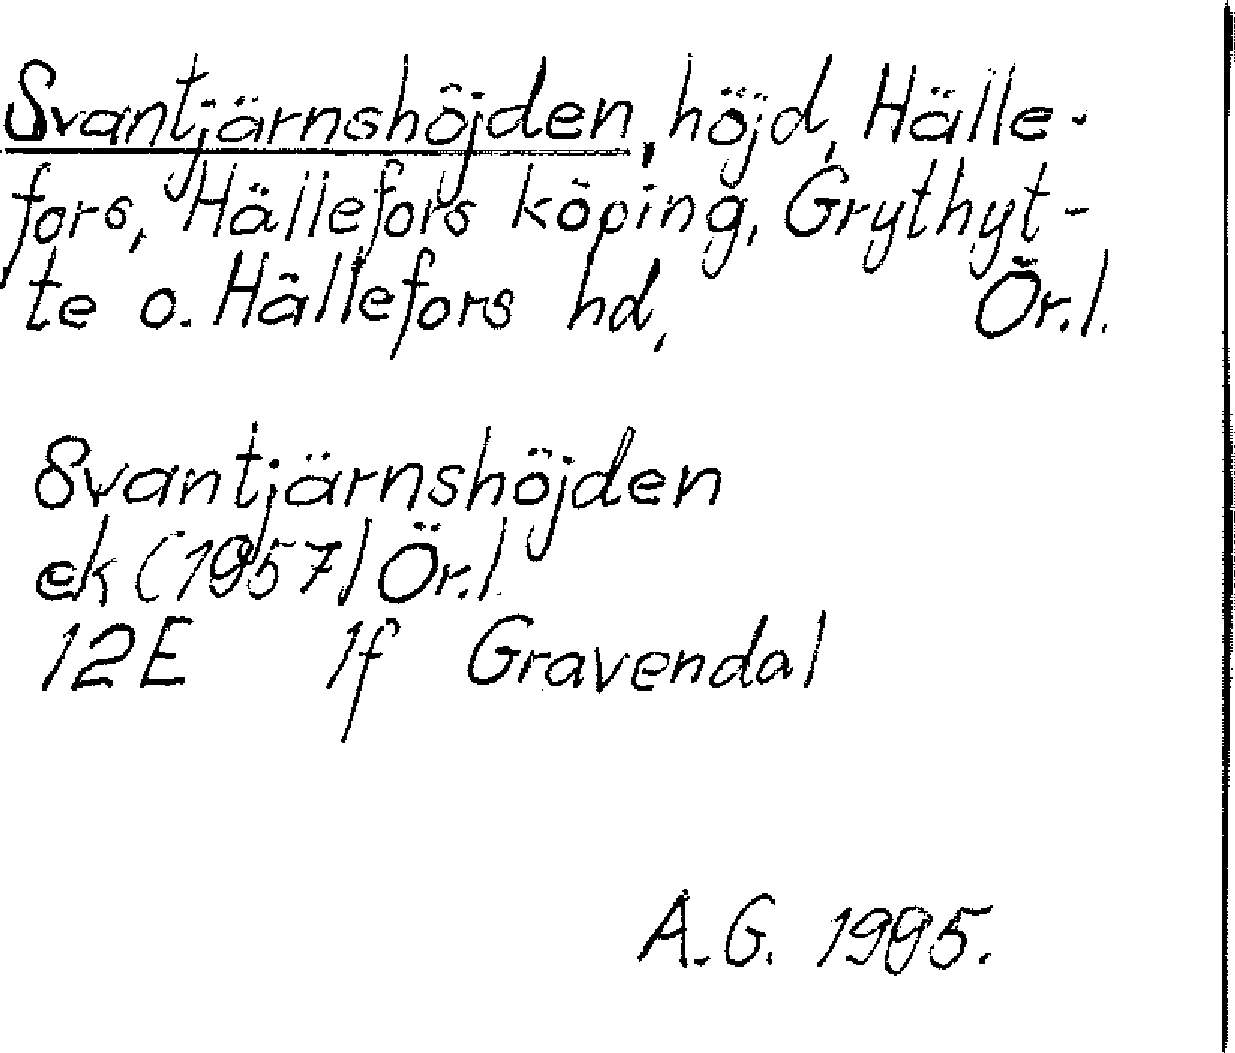 Svantjärnshöjden, höjd, Hälle-
fors, Hällefors köping, Grythyt-
te o. Hällefors hd, Ör.l.
Svantjärnshöjden
ek (1957) Ör.l.
12E 1f Gravendal
A.G. 1995.